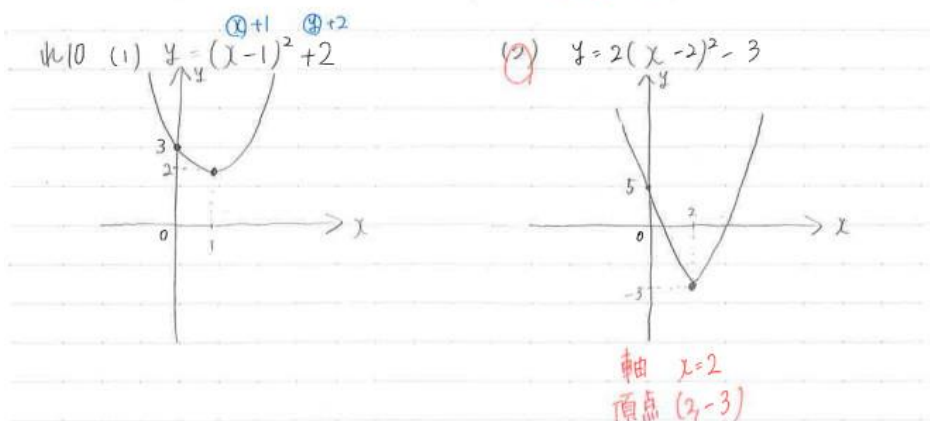 ⓧ+1 ⓨ+2
10 (1) y=(x-1)²+2
y
3
2
0
1
x
(2) y=2(x-2)²-3
y
5
2
0
x
-3
軸 x=2
頂点 (2,-3)